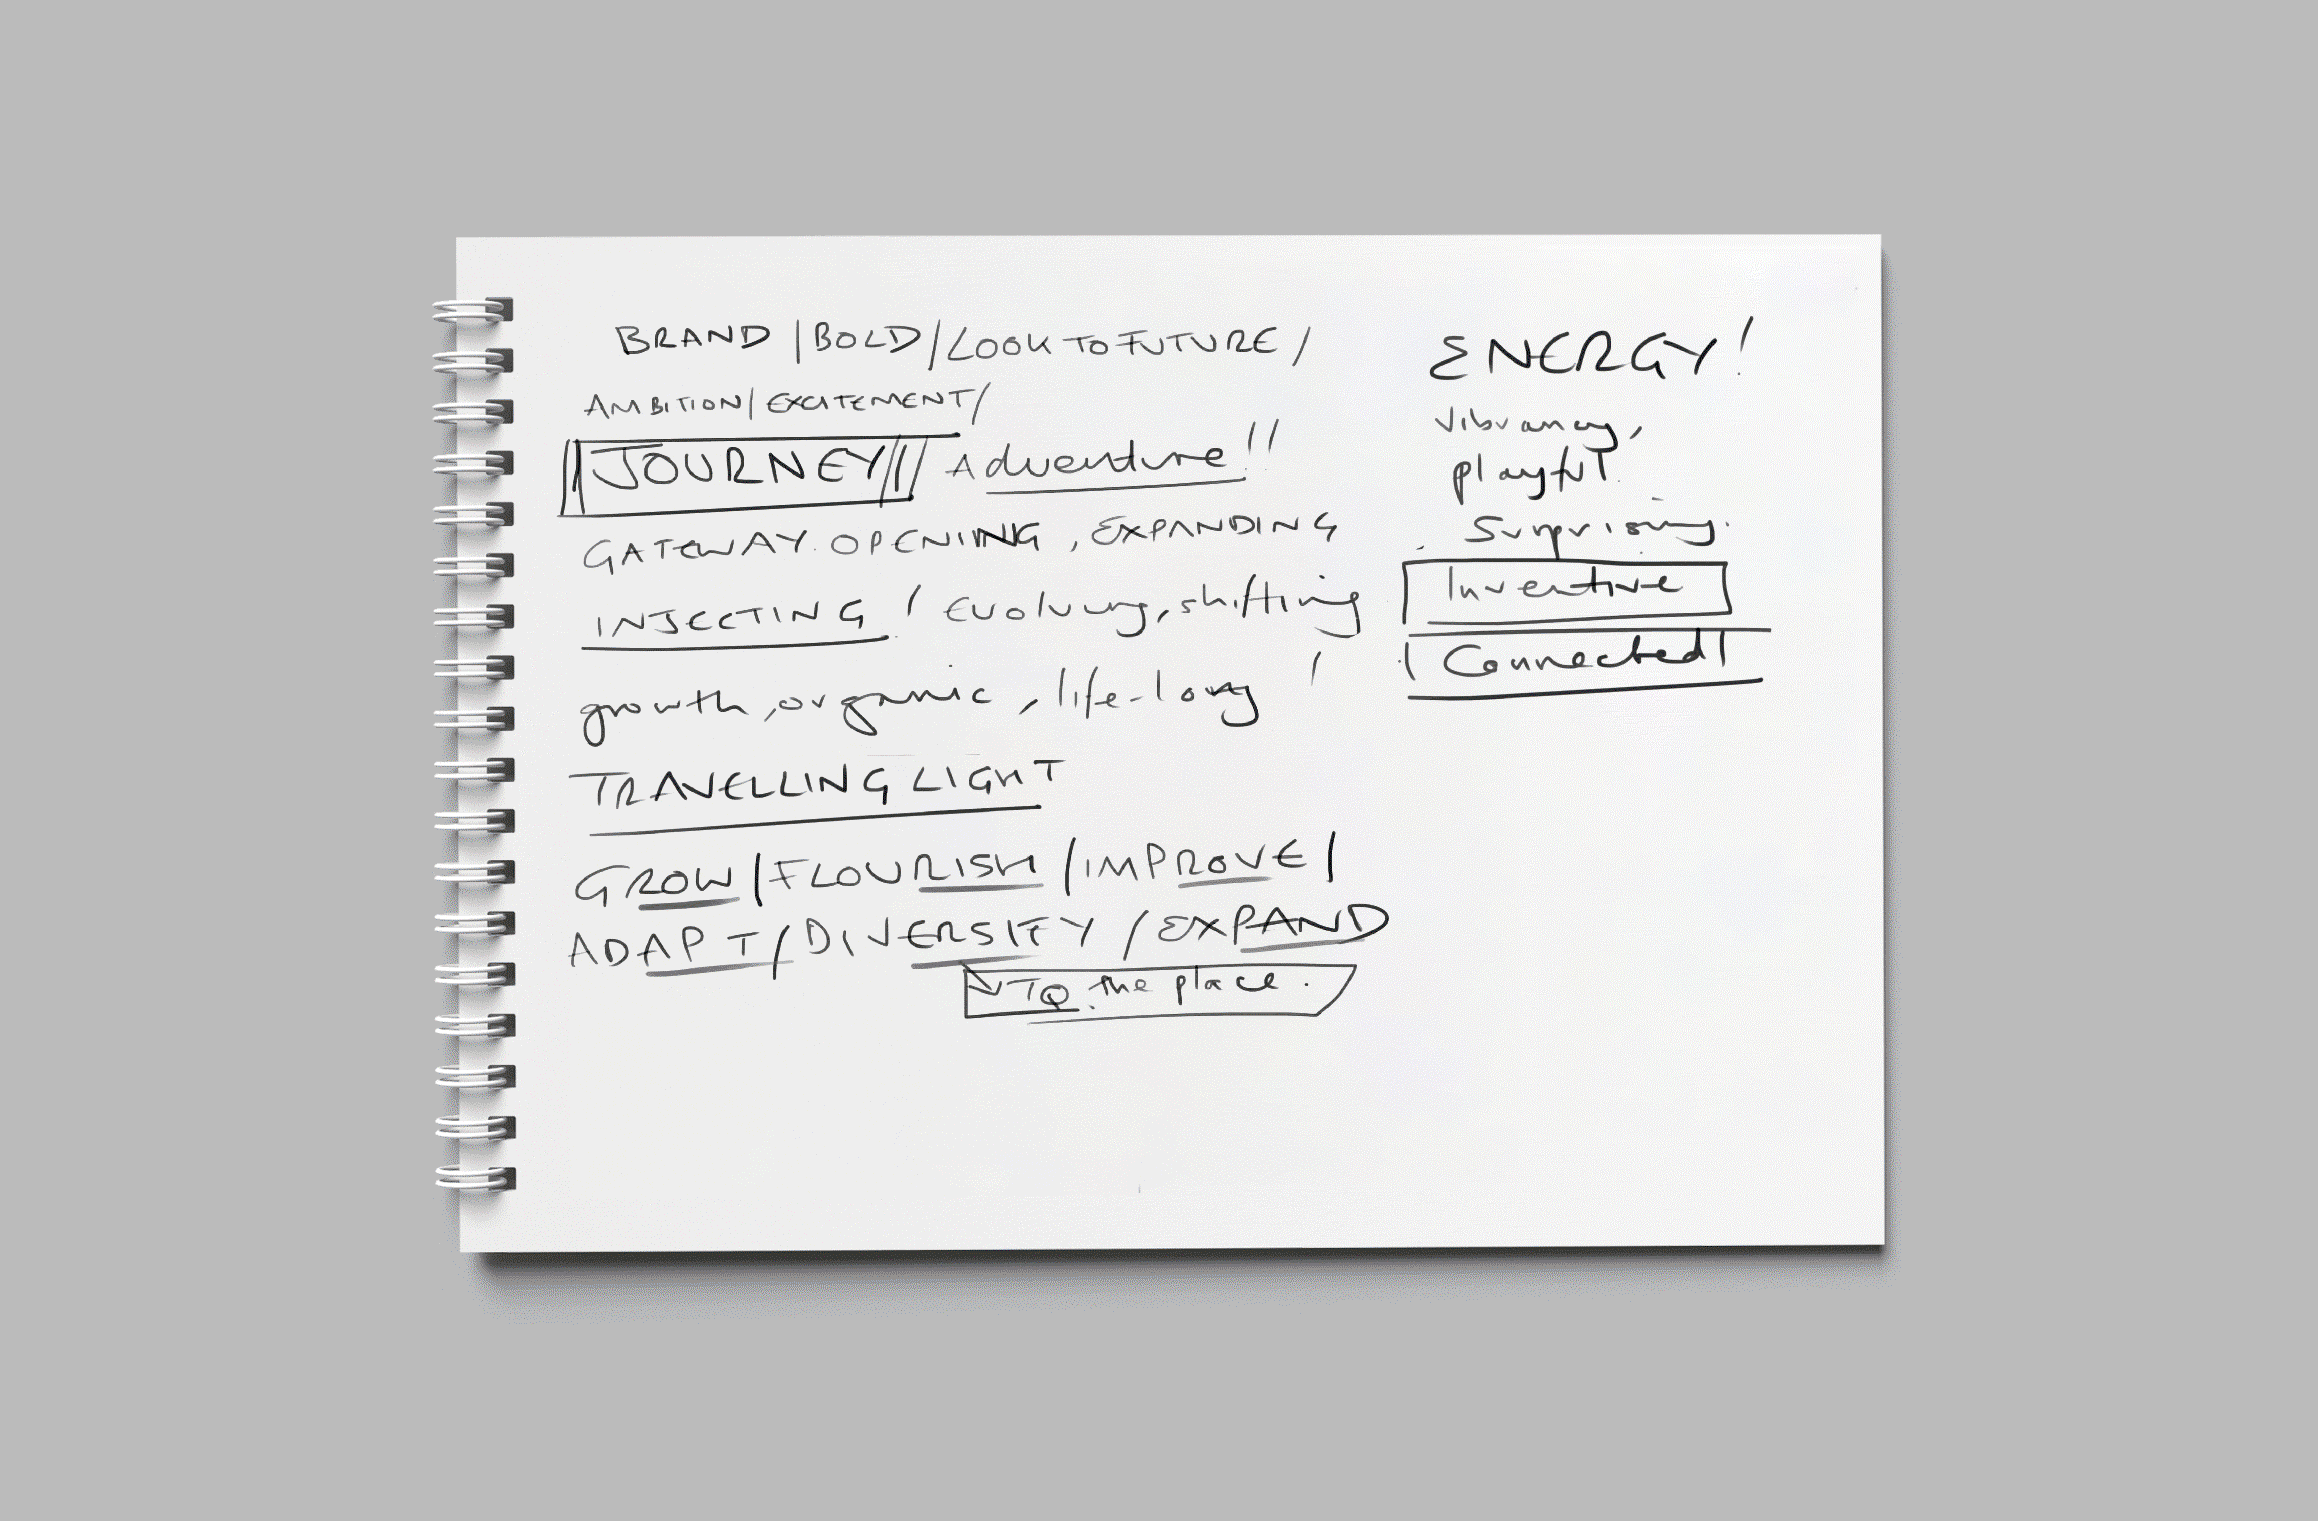 BRAND / BOLD / LOOK TO FUTURE /
AMBITION / EXCITEMENT /
JOURNEY Adventure!!
GATEWAY. OPENING, EXPANDING
INJECTING! Evolving, shifting
growth, organic, life-long!
TRAVELLING LIGHT
GROW / FLOURISH / IMPROVE /
ADAPT / DIVERSIFY / EXPAND
TO the place.
ENERGY!
vibrancy,
playful.
Surprising.
Inventive
Connected!